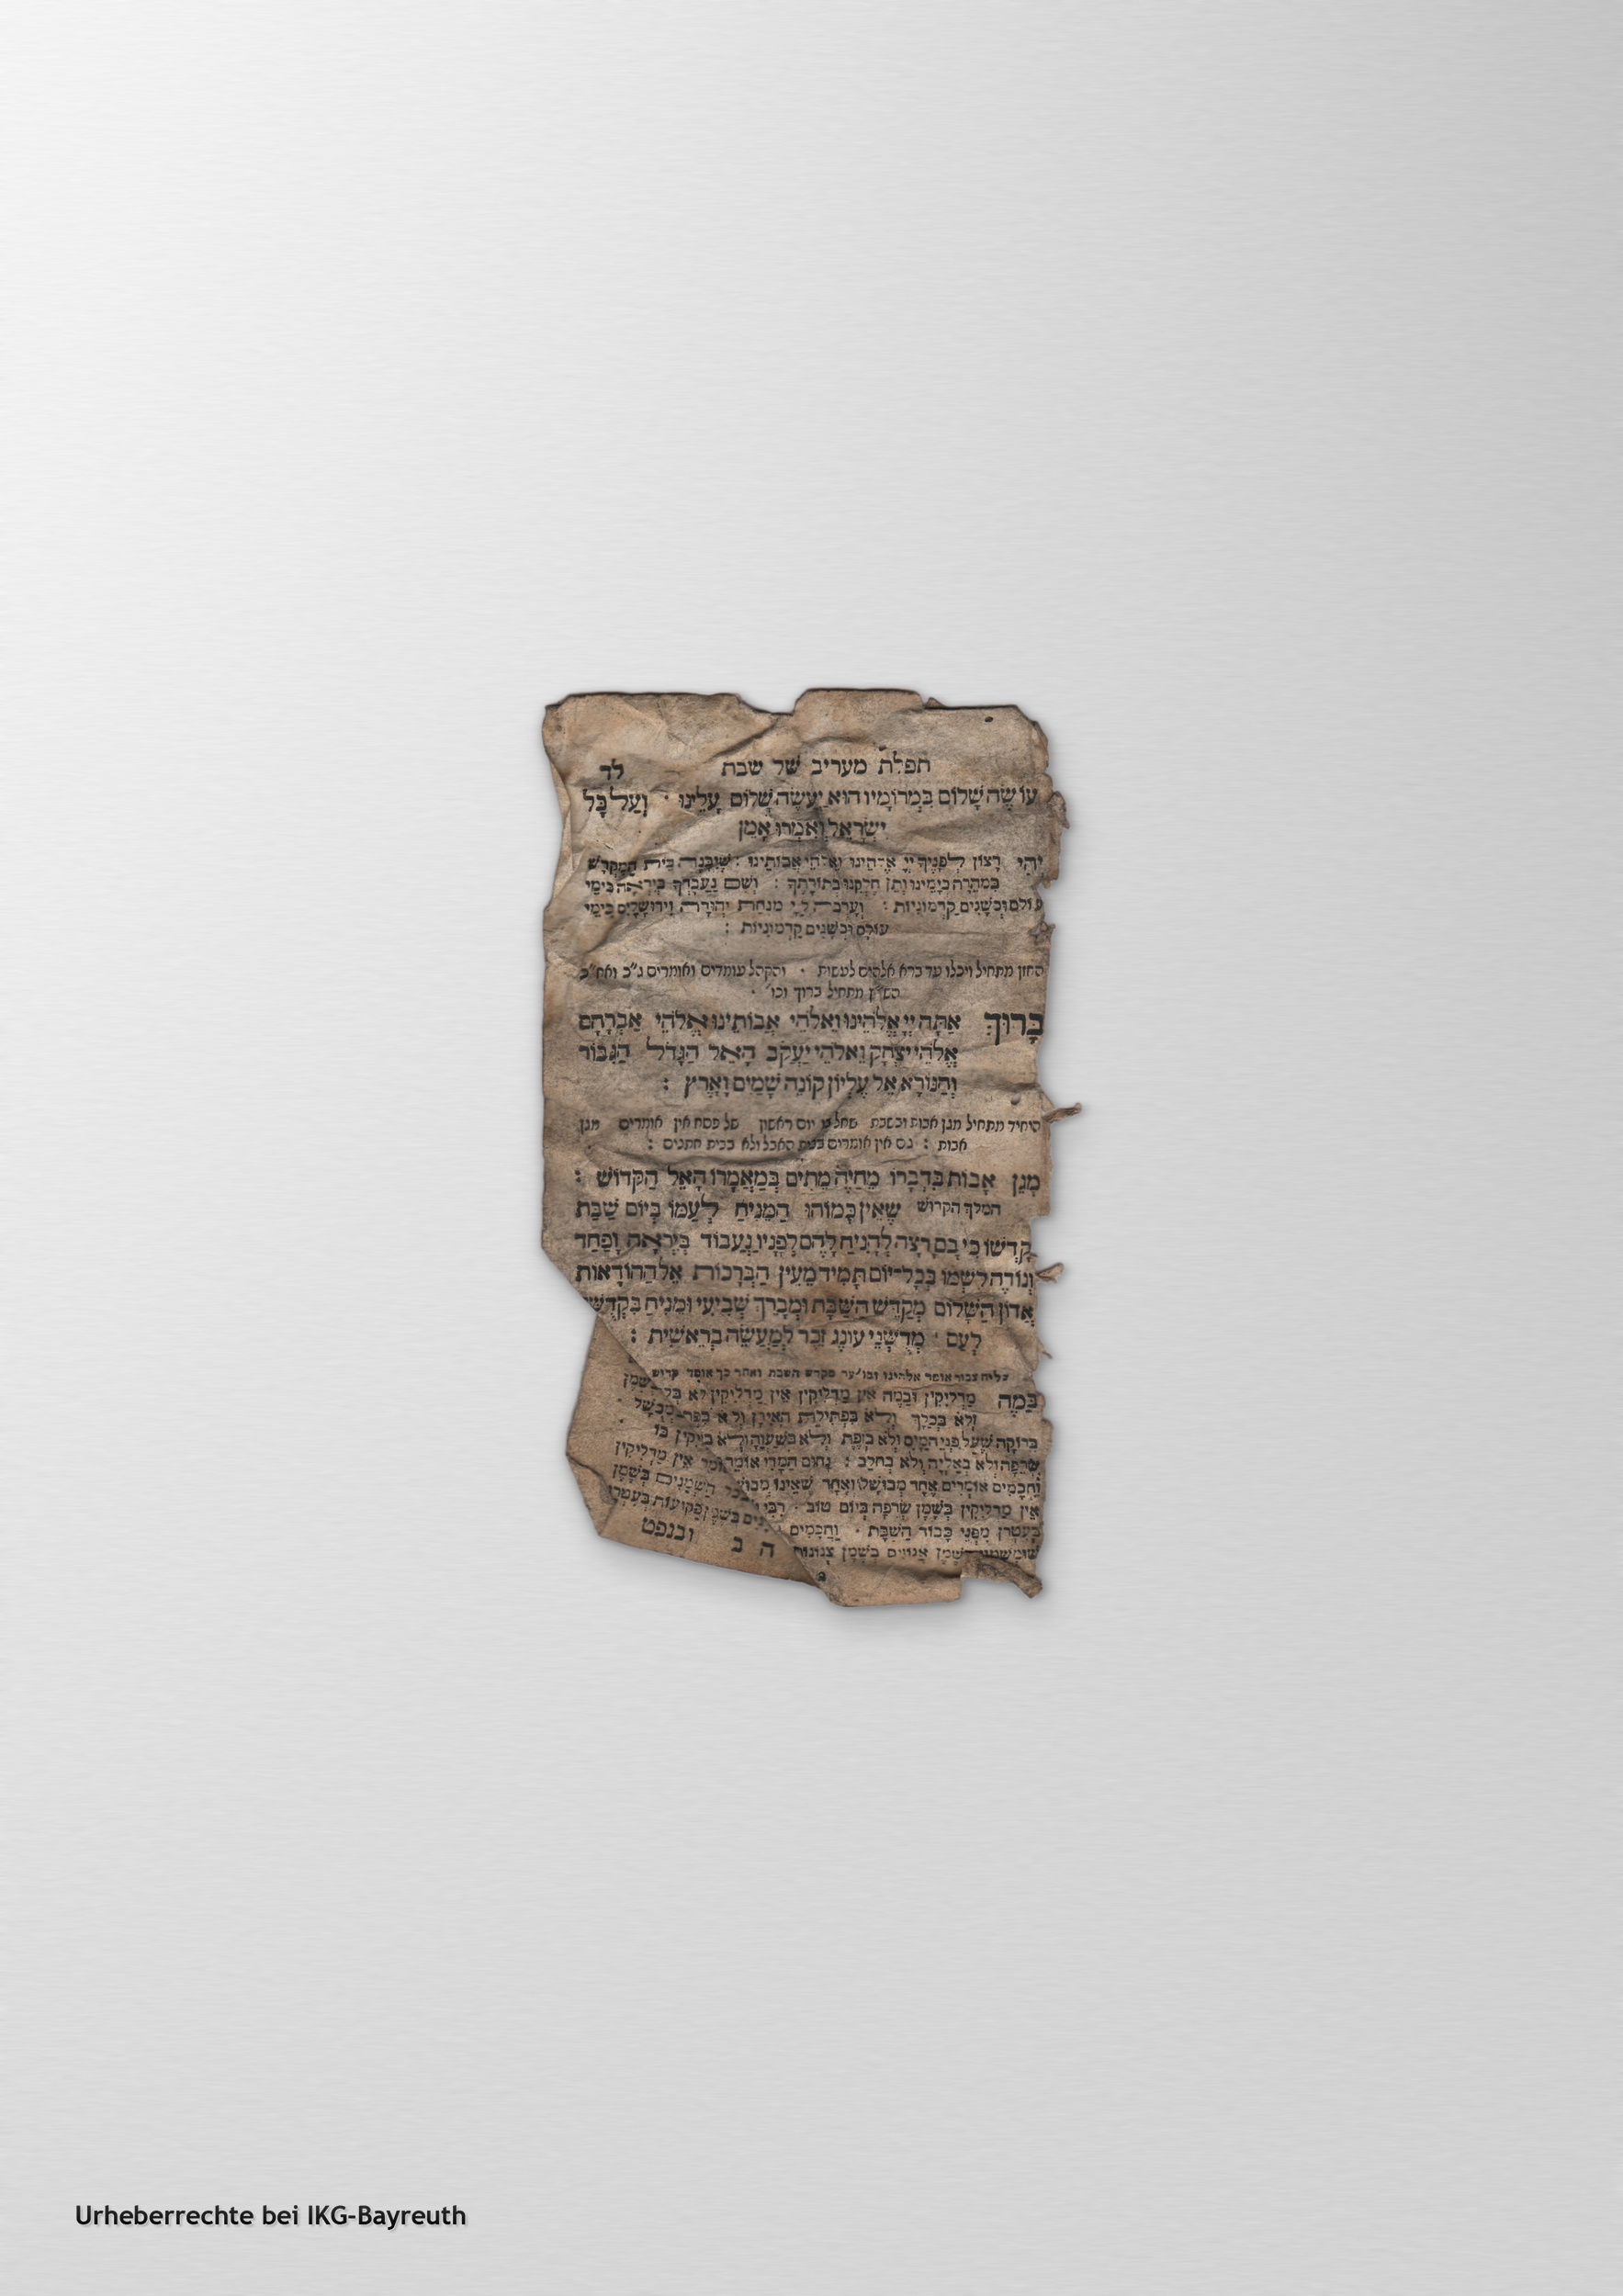 תפלת מעריב של שבת לד
עוֹשֶׂה שָׁלוֹם בִּמְרוֹמָיו הוּא יַעֲשֶׂה שָׁלוֹם עָלֵינוּ · וְעַל כָּל
יִשְׂרָאֵל וְאִמְרוּ אָמֵן
יְהִי רָצוֹן לְפָנֶיךָ יְיָ אֱ־הֵינוּ וֵא־הֵי אֲבוֹתֵינוּ : שֶׁיִּבָּנֶה בֵּית הַמִּקְדָּשׁ
בִּמְהֵרָה בְיָמֵינוּ וְתֵן חֶלְקֵנוּ בְּתוֹרָתֶךָ : וְשָׁם נַעֲבָדְךָ בְּיִרְאָה כִּימֵי
עוֹלָם וּכְשָׁנִים קַדְמוֹנִיּוֹת : וְעָרְבָה לַיְיָ מִנְחַת יְהוּדָה וִירוּשָׁלָיִם כִּימֵי
עוֹלָם וּכְשָׁנִים קַדְמוֹנִיּוֹת :
החזן מתחיל ויכלו עד ברא אלהים לעשות · והקהל עומדים ואומרים ג"כ ואח"כ
הש"ץ מתחיל ברוך וכו' ·
בָּרוּךְ אַתָּה יְיָ אֱלֹהֵינוּ וֵאלֹהֵי אֲבוֹתֵינוּ אֱלֹהֵי אַבְרָהָם
אֱלֹהֵי יִצְחָק וֵאלֹהֵי יַעֲקֹב הָאֵל הַגָּדֹל הַגִּבּוֹר
וְהַנּוֹרָא אֵל עֶלְיוֹן קוֹנֵה שָׁמַיִם וָאָרֶץ :
היחיד מתחיל מגן אבות ובשבת שחל בו יום ראשון של פסח אין אומרים מגן
אבות : גם אין אומרים בבית האבל ולא בבית חתנים :
מָגֵן אָבוֹת בִּדְבָרוֹ מְחַיֵּה מֵתִים בְּמַאֲמָרוֹ הָאֵל הַקָּדוֹשׁ :
המלך הקדוש שֶׁאֵין כָּמוֹהוּ הַמֵּנִיחַ לְעַמּוֹ בְּיוֹם שַׁבַּת
קָדְשׁוֹ כִּי בָם רָצָה לְהָנִיחַ לָהֶם לְפָנָיו נַעֲבוֹד בְּיִרְאָה וָפַחַד
וְנוֹדֶה לִשְׁמוֹ בְּכָל־יוֹם תָּמִיד מֵעֵין הַבְּרָכוֹת אֵל הַהוֹדָאוֹת
אֲדוֹן הַשָּׁלוֹם מְקַדֵּשׁ הַשַּׁבָּת וּמְבָרֵךְ שְׁבִיעִי וּמֵנִיחַ בִּקְדֻשָּׁה
לְעַם · מְדֻשְּׁנֵי עוֹנֶג זֵכֶר לְמַעֲשֵׂה בְרֵאשִׁית :
שליח צבור אומר אלהינו וכו' עד מקדש השבת ואחר כך אומר קדיש
בַּמֶּה מַדְלִיקִין וּבַמֶּה אֵין מַדְלִיקִין אֵין מַדְלִיקִין לֹא
וְלֹא בְּכָלָךְ וְלֹא בִּפְתִילַת הָאִידָן וְלֹא
בִּירוֹקָה שֶׁעַל פְּנֵי הַמַּיִם וְלֹא בְזֶפֶת וְלֹא בְּשַׁעֲוָה וְלֹא בְּקִיק
שְׂרֵפָה וְלֹא בְאַלְיָה וְלֹא בְחֵלֶב : נַחוּם הַמָּדִי אוֹמֵר אֵין מַדְלִיקִין
וַחֲכָמִים אוֹמְרִים אֶחָד מְבוּשָּׁל וְאֶחָד שֶׁאֵינוֹ מְבוּשָּׁל הַשְּׁמָנִים בְּשֶׁמֶן
אֵין מַדְלִיקִין בְּשֶׁמֶן שְׂרֵפָה בְּיוֹם טוֹב · רַבִּי
בְּעִטְרָן מִפְּנֵי כְּבוֹד הַשַּׁבָּת · וַחֲכָמִים
שׁוּמְשְׁמִין בְּשֶׁמֶן אֱגוֹזִים בְּשֶׁמֶן צְנוֹנוֹת
ה ב ובנפט
Urheberrechte bei IKG-Bayreuth